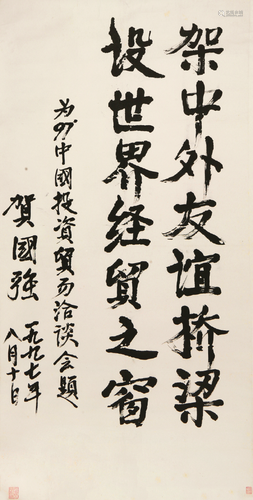 架中外友谊桥梁
设世界经贸之窗
为97中國投資貿易洽谈会題
賀國强
一九九七年
八月十日